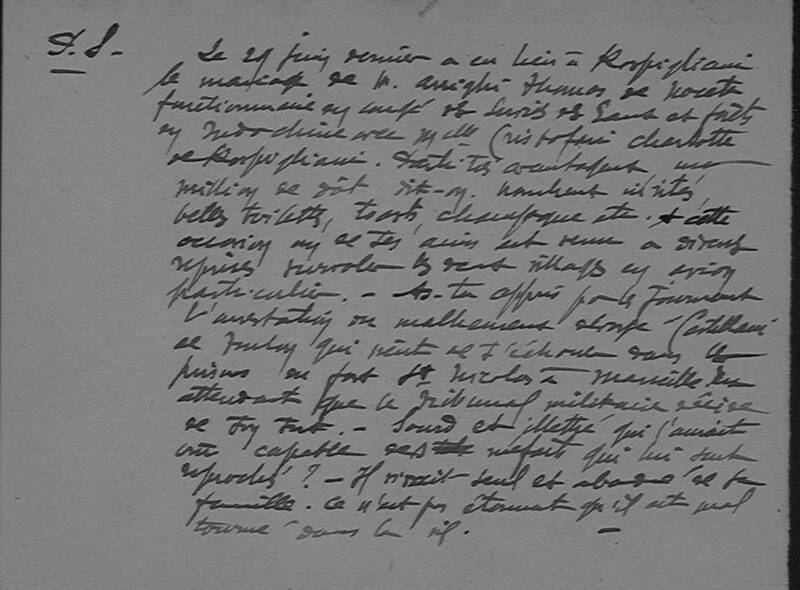 P.S.- Le 29 juin dernier a eu lieu à Rospigliani
le mariage de M. Arrighi Thomas de Noceta
fonctionnaire en congé des Eaux et forêts
en Indochine avec Mlle Cristofari Charlotte
de Rospigliani. Parti très avantageux un
million de dot dit-on. Nombreux invités,
belles toilettes, toasts, champagne etc. A cette
occasion un de ses amis est venu à diverses
reprises survoler les deux villages en avion
particulier. - As-tu appris par les journaux
l'arrestation du malheureux Castellani
de Toulon qui vient de s'échouer dans les
prisons du fort St Nicolas à Marseille en
attendant que le tribunal militaire décide
de son sort. - Sourd et illettré qui l'aurait
cru capable des méfaits qui lui sont
reprochés ? - Il vivait seul et abandonné de sa
famille. Ce n'est pas étonnant qu'il ait mal
tourné dans la vie. -